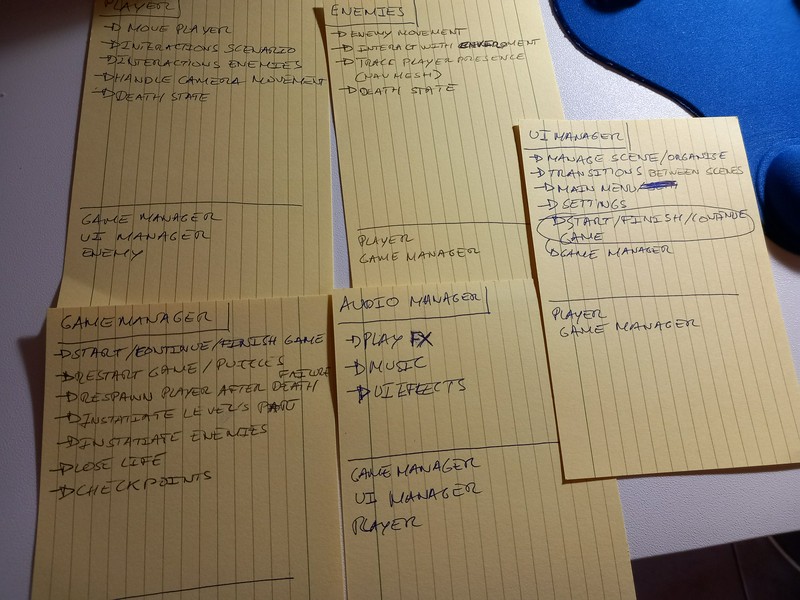 PLAYER
MOVE PLAYER
INTERACTIONS SCENARIO
INTERACTIONS ENEMIES
HANDLE CAMERA MOVEMENT
DEATH STATE
GAME MANAGER
UI MANAGER
ENEMY
ENEMIES
ENEMY MOVEMENT
INTERACT WITH
TRACK PLAYER PRESENCE
(NAV MESH)
DEATH STATE
PLAYER
GAME MANAGER
UI MANAGER
MANAGE SCENE/ORGANISE
TRANSITIONS BETWEEN SCENES
MAIN MENU
SETTINGS
START/FINISH/CONTINUE
GAME
GAME MANAGER
PLAYER
GAME MANAGER
GAME MANAGER
START/CONTINUE/FINISH GAME
RESTART GAME/PUZZLES
FAILURE
RESPAWN PLAYER AFTER DEATH
INSTATIATE LEVEL'S PART
INSTATIATE ENEMIES
LOSE LIFE
CHECKPOINTS
AUDIO MANAGER
PLAY FX
MUSIC
UI EFFECTS
GAME MANAGER
UI MANAGER
PLAYER